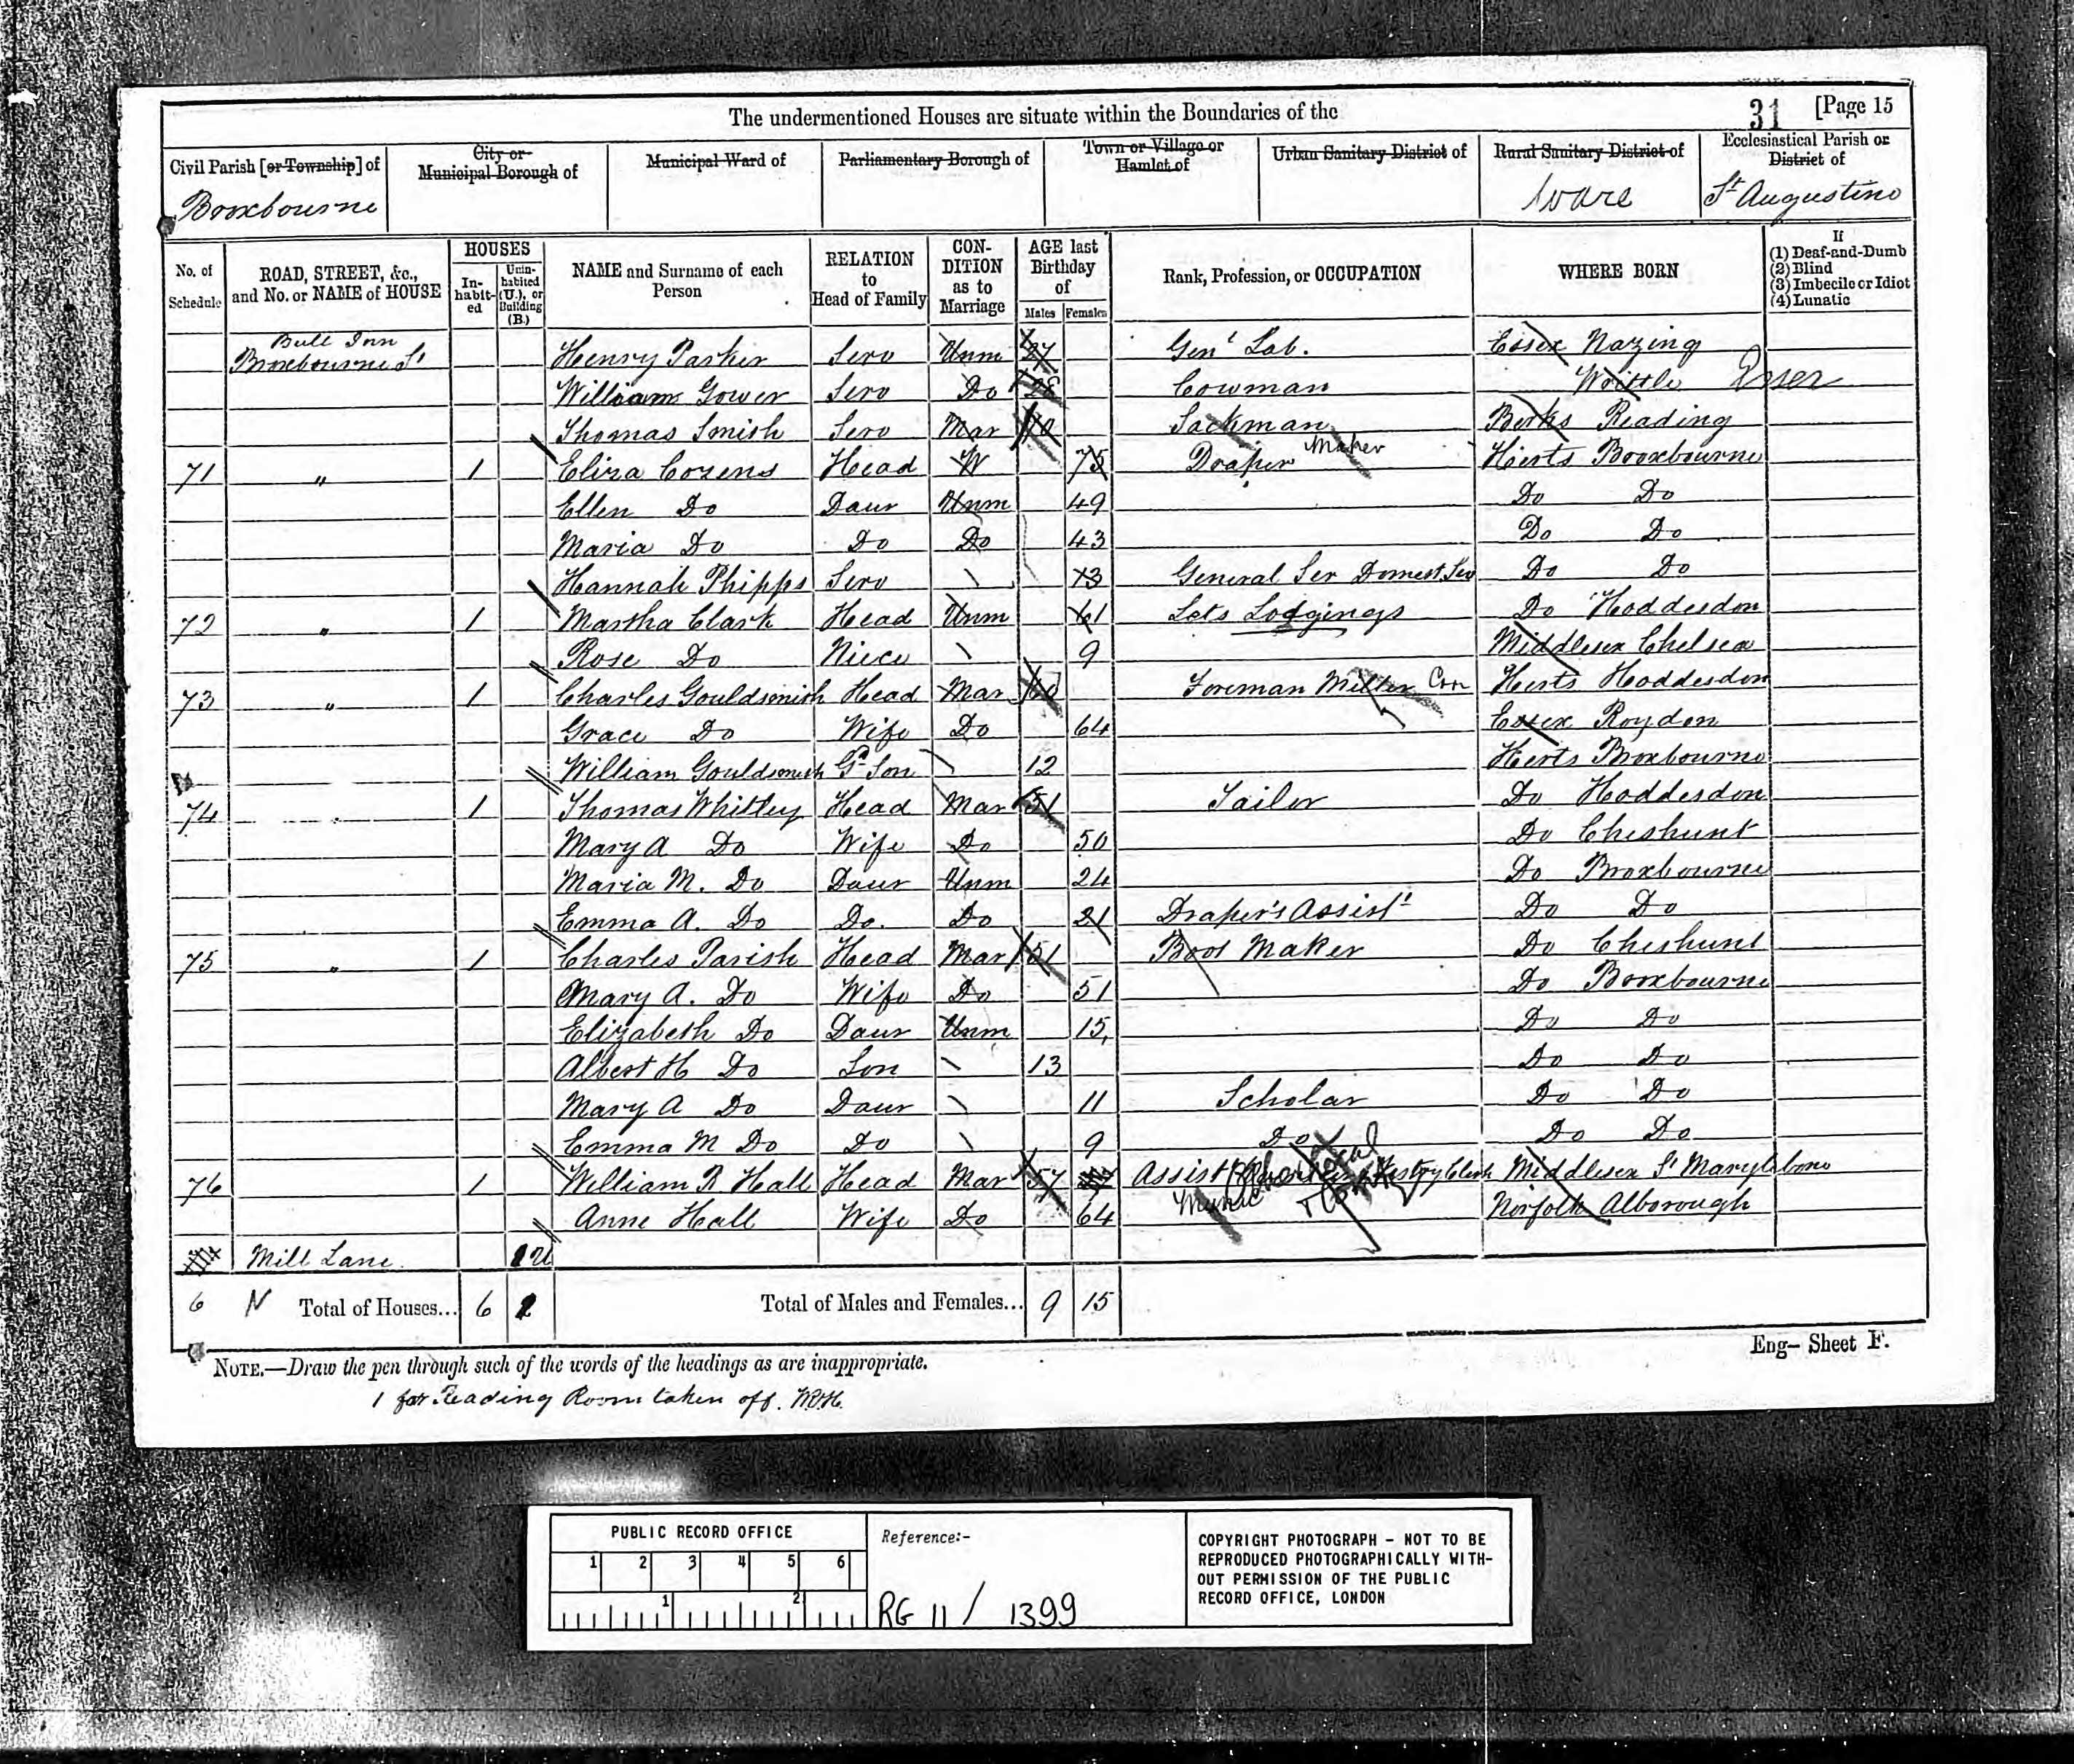 The undermentioned Houses are situate within the Boundaries of the
31 [Page 15
Civil Parish [or Township] of
City or Municipal Borough of
Municipal Ward of
Parliamentary Borough of
Town or Village or Hamlet of
Urban Sanitary District of
Rural Sanitary District of
Ecclesiastical Parish or District of
Broxbourne
Ware
St Augustine
No. of Schedule
ROAD, STREET, &c., and No. or NAME of HOUSE
HOUSES
In-habit-ed
Unin-habited (U.), or Building (B.)
NAME and Surname of each Person
RELATION to Head of Family
CON-DITION as to Marriage
AGE last Birthday of
Males Females
Rank, Profession, or OCCUPATION
WHERE BORN
If
(1) Deaf-and-Dumb
(2) Blind
(3) Imbecile or Idiot
(4) Lunatic
Bull Inn
Broxbourne St Henry Parker Serv Unm 27 Genl Lab. Essex Nazing
William Gower Serv Do 28 Cowman Writtle Essex
Thomas Smith Serv Mar Sackman Maker Berks Reading
71 " 1 Eliza Cozens Head W 75 Draper Herts Broxbourne
Ellen Do Daur Unm 49 Do Do
Maria Do Do Do 43 Do Do
Hannah Phipps Serv \ 13 General Ser Domest. Ser Do Do
72 " 1 Martha Clark Head Unm 61 Lets Lodgings Do Hoddesdon
Rose Do Niece \ 9 Middlesex Chelsea
73 " 1 Charles Gouldsmith Head Mar 60 Foreman Miller Corn Herts Hoddesdon
Grace Do Wife Do 64 Essex Roydon
William Gouldsmith Gd Son \ 12 Herts Broxbourne
74 " 1 Thomas Whitley Head Mar 51 Tailor Do Hoddesdon
Mary A Do Wife Do 50 Do Cheshunt
Maria M. Do Daur Unm 24 Do Broxbourne
Emma A. Do Do. Do 21 Draper's Assist Do Do
75 " 1 Charles Parish Head Mar 51 Boot Maker Do Cheshunt
Mary A. Do Wife Do 51 Do Broxbourne
Elizabeth Do Daur Unm 15 Do Do
Albert H Do Son \ 13 Do Do
Mary A Do Daur \ 11 Scholar Do Do
Emma M Do Do \ 9 Do Do Do
76 1 William R Hall Head Mar 57 Assist Vestry Clerk Middlesex St Marylebone
Anne Hall Wife Do 64 Music Norfolk Alborough
Mill Lane
6 N Total of Houses... 6 Total of Males and Females... 9 15
Eng– Sheet F.
NOTE.—Draw the pen through such of the words of the headings as are inappropriate.
1 for Reading Room taken off. W.R.H.
PUBLIC RECORD OFFICE
1 2 3 4 5 6
1 2
Reference:-
RG 11 / 1399
COPYRIGHT PHOTOGRAPH – NOT TO BE
REPRODUCED PHOTOGRAPHICALLY WITH-
OUT PERMISSION OF THE PUBLIC
RECORD OFFICE, LONDON